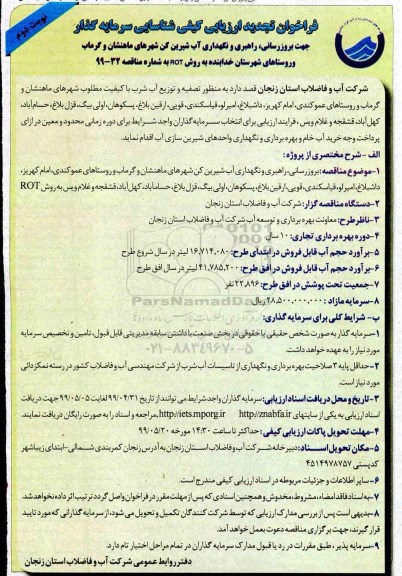 نوبت دوم
فراخوان تجدید ارزیابی کیفی شناسایی سرمایه گذار
جهت بروزرسانی، راهبری و نگهداری آب شیرین کن شهرهای ماهنشان و گرماب
وروستاهای شهرستان خدابنده به روش ROT به شماره مناقصه ۳۲-۹۹
شرکت آب و فاضلاب استان زنجان قصد دارد به منظور تصفیه و توزیع آب شرب با کیفیت مطلوب شهرهای ماهنشان و
گرماب و روستاهای عموکندی، امام کهریز، داشبلاغ، امیرلو، قیاسکندی، قویی، ارقین بلاغ، پسکوهان، اولی بیگ، قزل بلاغ، حسام آباد،
کهل آباد، قشقجه و غلام ویس، فرایند ارزیابی برای انتخاب سرمایه گذاران واجد شرایط برای دوره زمانی محدود و معین در ازای
پرداخت وجه خرید آب خام و بهره برداری و نگهداری واحدهای شیرین سازی آب اقدام نماید.
الف - شرح مختصری از پروژه:
۱-موضوع مناقصه: بروزرسانی، راهبری و نگهداری آب شیرین کن شهرهای ماهنشان و گرماب و روستاهای عموکندی، امام کهریز،
داشبلاغ، امیرلو، قیاسکندی، قویی، ارقین بلاغ، پسکوهان، اولی بیگ، قزل بلاغ، حسام آباد، کهل آباد، قشقجه و غلام ویس به روش ROT
۲-دستگاه مناقصه گزار: شرکت آب و فاضلاب استان زنجان
۳-ناظر طرح: معاونت بهره برداری و توسعه آب شرکت آب و فاضلاب استان زنجان
۴-دوره بهره برداری تجاری: ۱۰ سال
۵-برآورد حجم آب قابل فروش در ابتدای طرح: ۱۶,۷۱۴,۰۸۰ لیتر در سال شروع طرح
۶-برآورد حجم آب قابل فروش در افق طرح: ۴۱,۷۸۵,۲۰۰ لیتر در سال افق طرح
۷-جمعیت تحت پوشش در افق طرح: ۲۲,۸۹۶ نفر
۸-سرمایه مازاد: ۲۸,۵۰۰,۰۰۰,۰۰۰ ریال
ب- شرایط کلی برای سرمایه گذاری:
۱-سرمایه گذار به صورت شخص حقیقی یا حقوقی در بخش صنعت با داشتن سابقه مدیریتی قابل قبول، تامین و تخصیص سرمایه
مورد نیاز را به عهده خواهد داشت.
۲-حداقل پایه ۲ صلاحیت بهره برداری و نگهداری از تاسیسات آب شرب از شرکت مهندسی آب و فاضلاب کشور در رسته نمکزدائی
مورد نیاز است.
۳-تاریخ و محل دریافت اسناد ارزیابی: سرمایه گذاران واجد شرایط می توانند از تاریخ ۹۹/۰۴/۳۱ لغایت ۹۹/۰۵/۰۵ جهت دریافت
اسناد ارزیابی به یکی از سایتهای http://znabfa.ir http://iets.mporg.ir مراجعه و اسناد را به صورت رایگان دریافت نمایند.
۴-مهلت تحویل پاکات ارزیابی کیفی: حداکثر تا ساعت ۱۴:۳۰ مورخه ۹۹/۰۵/۲۰
۵-مکان تحویل اسناد: دبیرخانه شرکت آب و فاضلاب استان زنجان به آدرس زنجان کمربندی شمالی-ابتدای زیباشهر
کدپستی ۴۵۱۴۹۷۸۷۵۷
۶-سایر اطلاعات و جزئیات مربوطه در اسناد ارزیابی کیفی مندرج است.
۷-به اسناد فاقد امضاء، مشروط، مخدوش و همچنین اسنادی که پس از مهلت مقرر در فراخوان واصل گردد ترتیب اثر داده نخواهد شد.
۸-بدیهی است پس از بررسی مدارک ارزیابی که توسط شرکت کنندگان تکمیل و تحویل می شود، از سرمایه گذارانی که مورد تایید
قرار گیرند، جهت برگزاری مناقصه دعوت بعمل خواهد آمد.
۹-سرمایه پذیر، طبق مقررات در رد یا قبول مدارک سرمایه گذاران در تمام مراحل اختیار تام دارد.
دفتر روابط عمومی شرکت آب و فاضلاب استان زنجان
ParsNamadData
۰۲۱-۸۸۳۴۹۶۷۰-۵